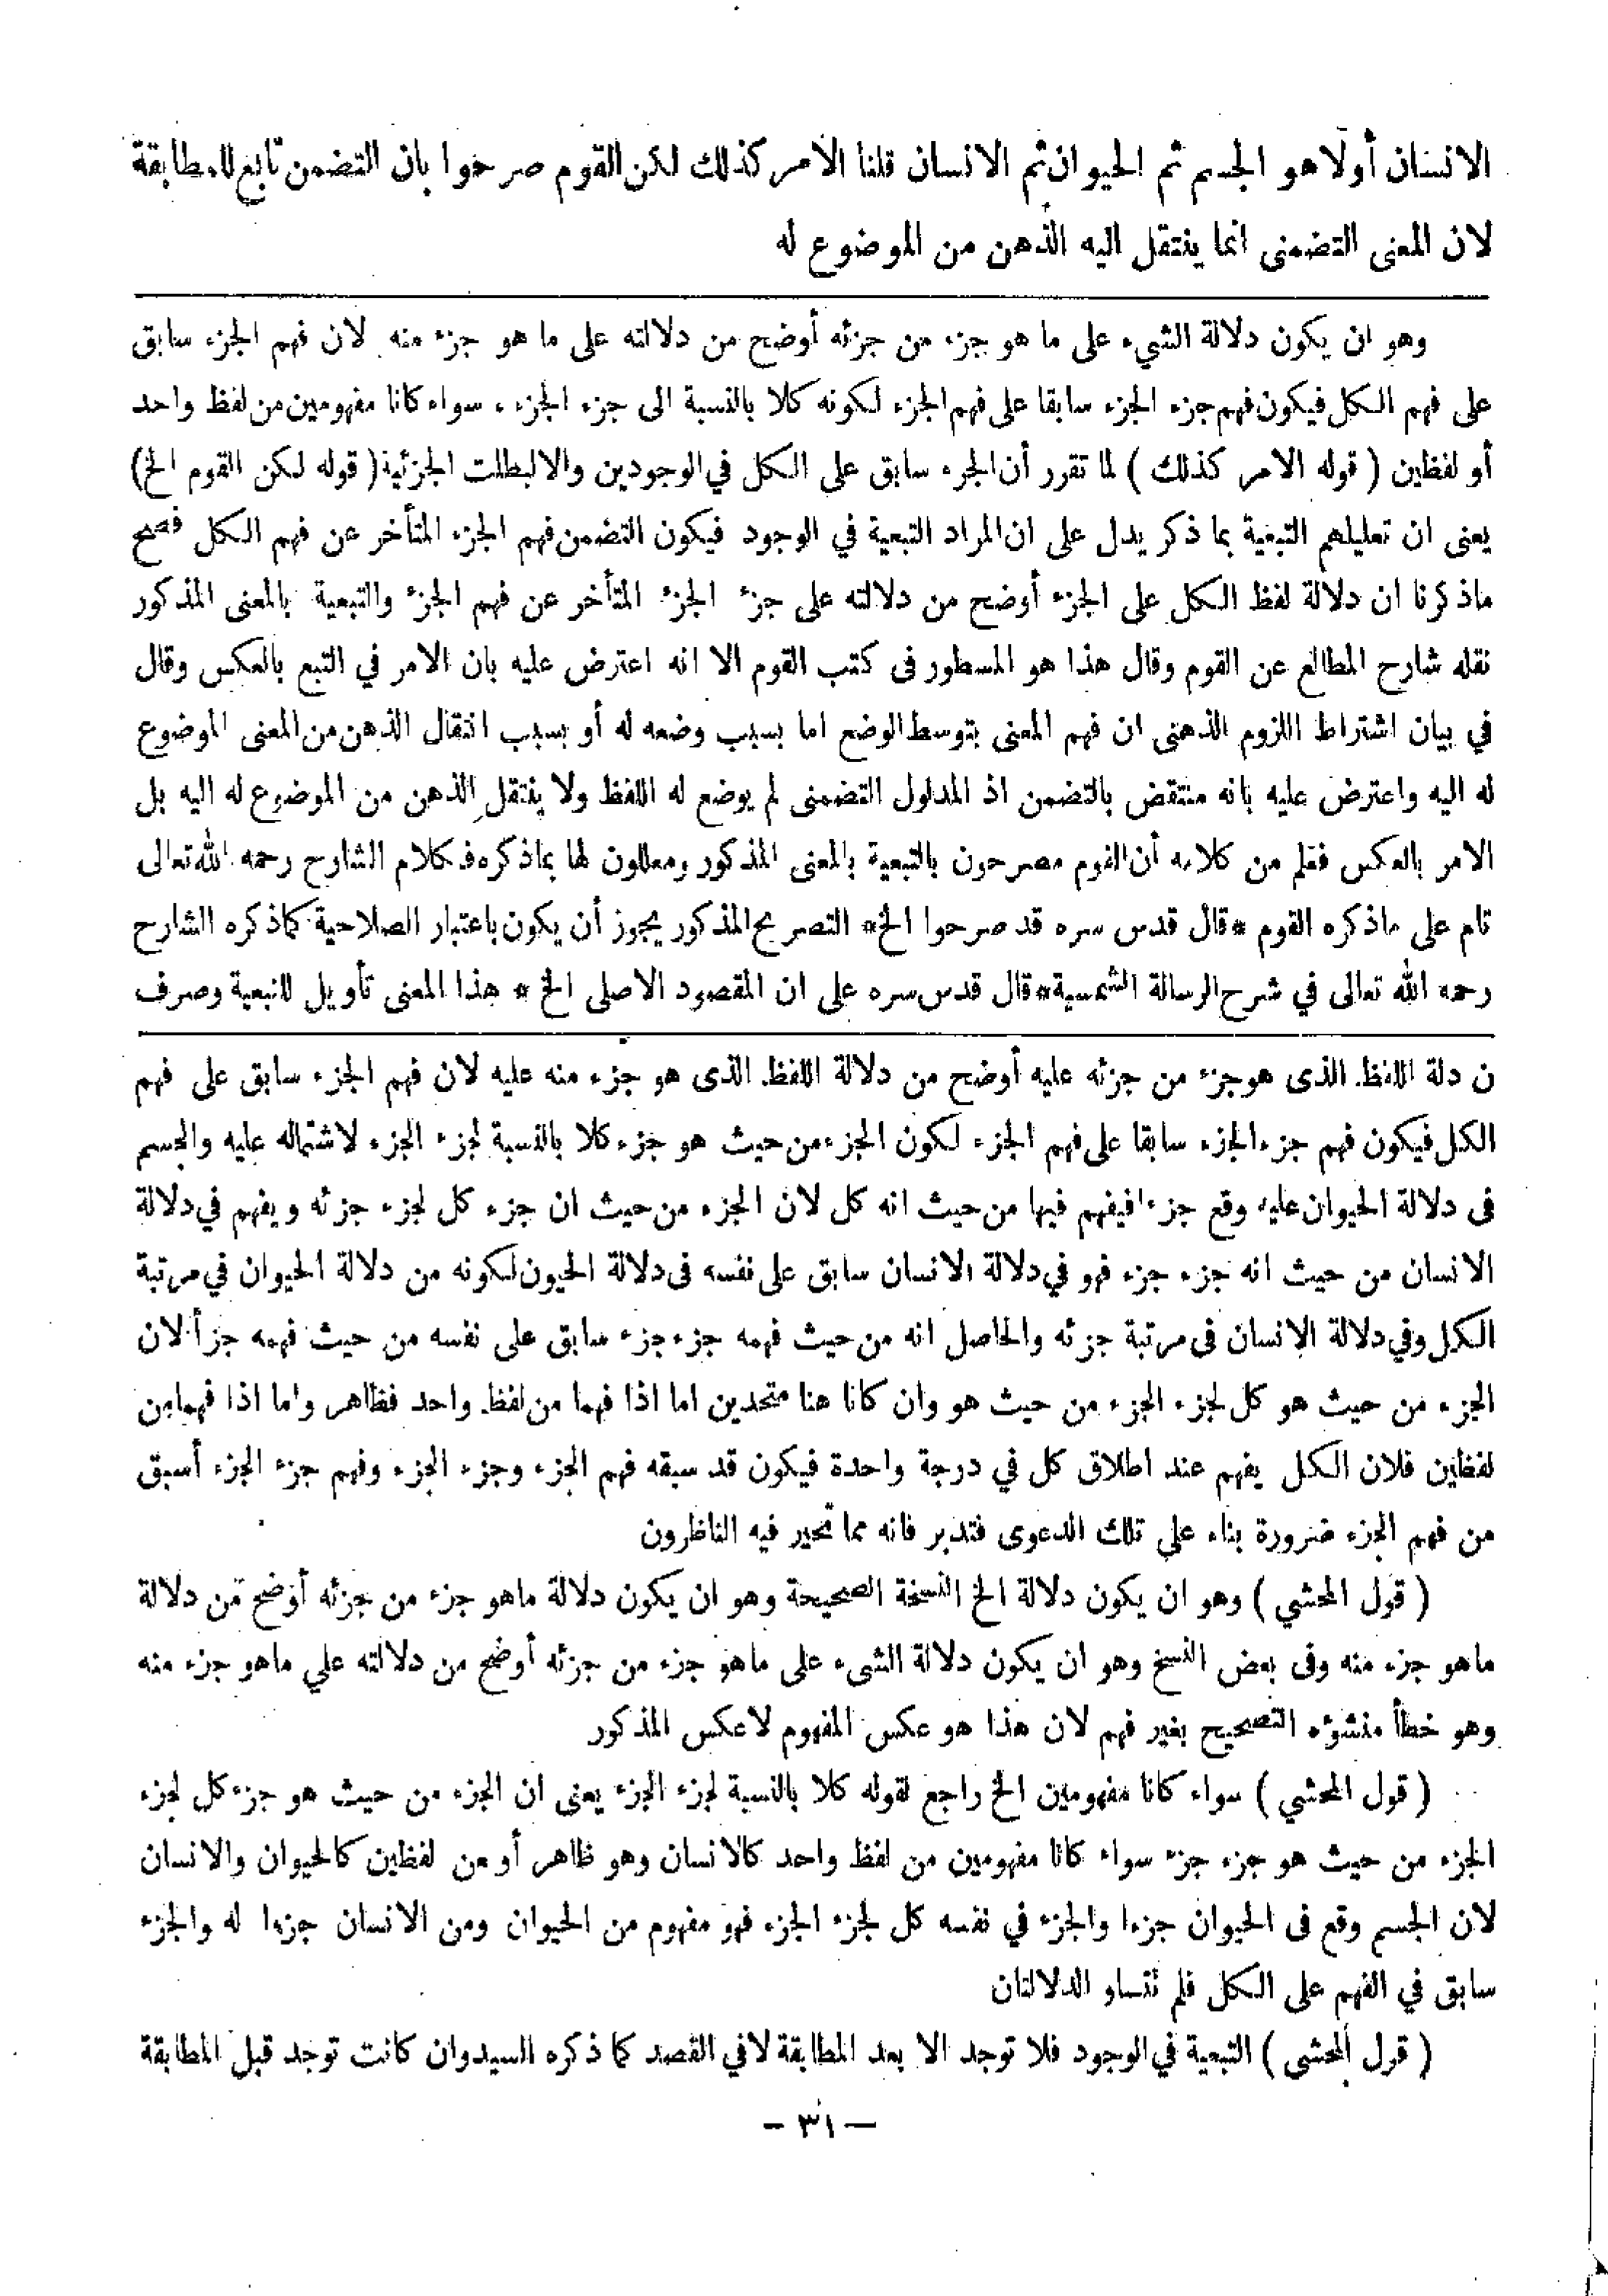 الانسان أولا هو الجسم ثم الحيوان ثم الانسان قلنا الأمر كذلك لكن القوم صرحوا بان التضمن تابع للمطابقة
لان المعنى التضمنى انما ينتقل اليه الذهن من الموضوع له
وهو ان يكون دلالة الشيء على ما هو جزء من جزئه أوضح من دلالته على ما هو جزء منه لان فهم الجزء سابق
على فهم الكل فيكون فهم جزء الجزء سابقا على فهم الجزء لكونه كلا بالنسبة الى جزء الجزء ، سواء كانا مفهومين من لفظ واحد
أو لفظين ( قوله الامر كذلك ) لما تقرر أن الجزء سابق على الكل في الوجودين والا لبطلت الجزئية ( قوله لكن القوم الخ )
يعنى ان تعليلهم التبعية بما ذكر يدل على ان المراد التبعية في الوجود فيكون التضمن فهم الجزء المتأخر عن فهم الكل فصح
ماذكرنا ان دلالة لفظ الكل على الجزء أوضح من دلالته على جزء الجزء المتأخر عن فهم الجزء والتبعية بالمعنى المذكور
نقله شارح المطالع عن القوم وقال هذا هو المسطور فى كتب القوم الا انه اعترض عليه بان الامر في التبع بالعكس وقال
في بيان اشتراط اللزوم الذهنى ان فهم المعنى بتوسط الوضع اما بسبب وضعه له أو بسبب انتقال الذهن من المعنى الموضوع
له اليه واعترض عليه بانه منتقض بالتضمن اذ المدلول التضمنى لم يوضع له اللفظ ولا ينتقل الذهن من الموضوع له اليه بل
الامر بالعكس فعلم من كلامه أن القوم مصرحون بالتبعية بالمعنى المذكور ومعللون لها بماذكره فكلام الشارح رحمه الله تعالى
تام على ماذكره القوم * قال قدس سره قد صرحوا الخ * التصريح المذكور يجوز أن يكون باعتبار الصلاحية كماذكره الشارح
رحمه الله تعالى في شرح الرسالة الشمسية * قال قدس سره على ان المقصود الاصلى الخ * هذا المعنى تأويل للتبعية وصرف
ن دلة اللفظ الذى هوجزء من جزئه عليه أوضح من دلالة اللفظ الذى هو جزء منه عليه لان فهم الجزء سابق على فهم
الكل فيكون فهم جزء الجزء سابقا على فهم الجزء لكون الجزء من حيث هو جزء كلا بالنسبة لجزء الجزء لاشتماله عليه والجسم
فى دلالة الحيوان عليه وقع جزءا فيفهم فيها من حيث انه كل لان الجزء من حيث ان جزء كل لجزء جزئه ويفهم في دلالة
الانسان من حيث انه جزء جزء فهو في دلالة الانسان سابق على نفسه فى دلالة الحيون لكونه من دلالة الحيوان في مرتبة
الكل وفي دلالة الانسان فى مرتبة جزئه والحاصل انه من حيث فهمه جزء جزء سابق على نفسه من حيث فهمه جزأ لان
الجزء من حيث هو كل لجزء الجزء من حيث هو وان كانا هنا متحدين اما اذا فهما من لفظ واحد فظاهر واما اذا فهمامن
لفظين فلان الكل يفهم عند اطلاق كل في درجة واحدة فيكون قد سبقه فهم الجزء وجزء الجزء وفهم جزء الجزء أسبق
من فهم الجزء ضرورة بناء على تلك الدعوى فتدبر فانه مما تحير فيه الناظرون
( قول المحشي ) وهو ان يكون دلالة الخ النسخة الصحيحة وهو ان يكون دلالة ماهو جزء من جزئه أوضح من دلالة
ماهو جزء منه وفى بعض النسخ وهو ان يكون دلالة الشىء على ماهو جزء من جزئه أوضح من دلالته علي ماهو جزء منه
وهو خطأ منشؤه التصحيح بغير فهم لان هذا هو عكس المفهوم لاعكس المذكور
( قول المحشي ) سواء كانا مفهومين الخ راجع لقوله كلا بالنسبة لجزء الجزء يعنى ان الجزء من حيث هو جزء كل لجزء
الجزء من حيث هو جزء جزء سواء كانا مفهومين من لفظ واحد كالانسان وهو ظاهر أو من لفظين كالحيوان والانسان
لان الجسم وقع فى الحيوان جزءا والجزء في نفسه كل لجزء الجزء فهو مفهوم من الحيوان ومن الانسان جزءا له والجزء
سابق في الفهم على الكل فلم تتساو الدلالتان
( قول المحشى ) التبعية في الوجود فلا توجد الا بعد المطابقة لافي القصد كما ذكره السيد وان كانت توجد قبل المطابقة
— ٣١ —